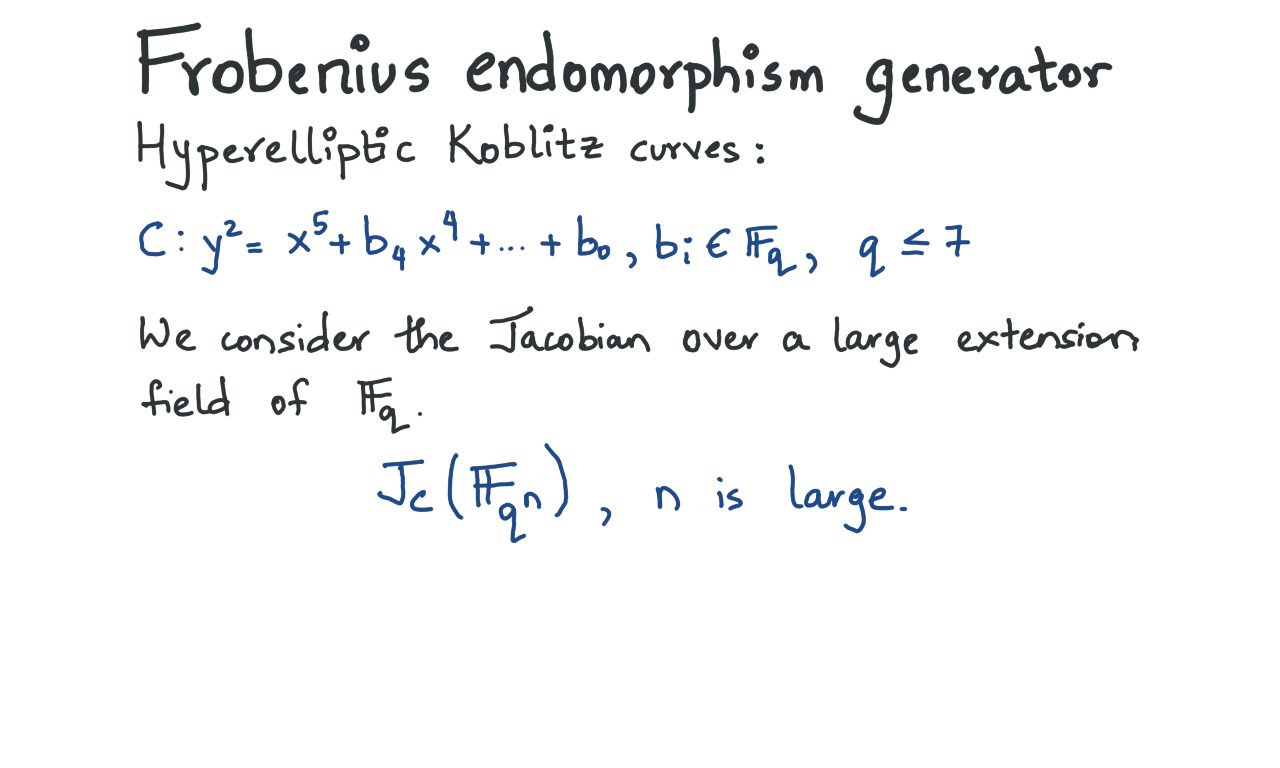 Frobenius endomorphism generator
Hyperelliptic Koblitz curves:
C: y² = x⁵ + b₄ x⁴ + ... + b₀, bᵢ ∈ 𝔽_q, q ≤ 7
We consider the Jacobian over a large extension
field of 𝔽_q.
J_C(𝔽_{qⁿ}), n is large.